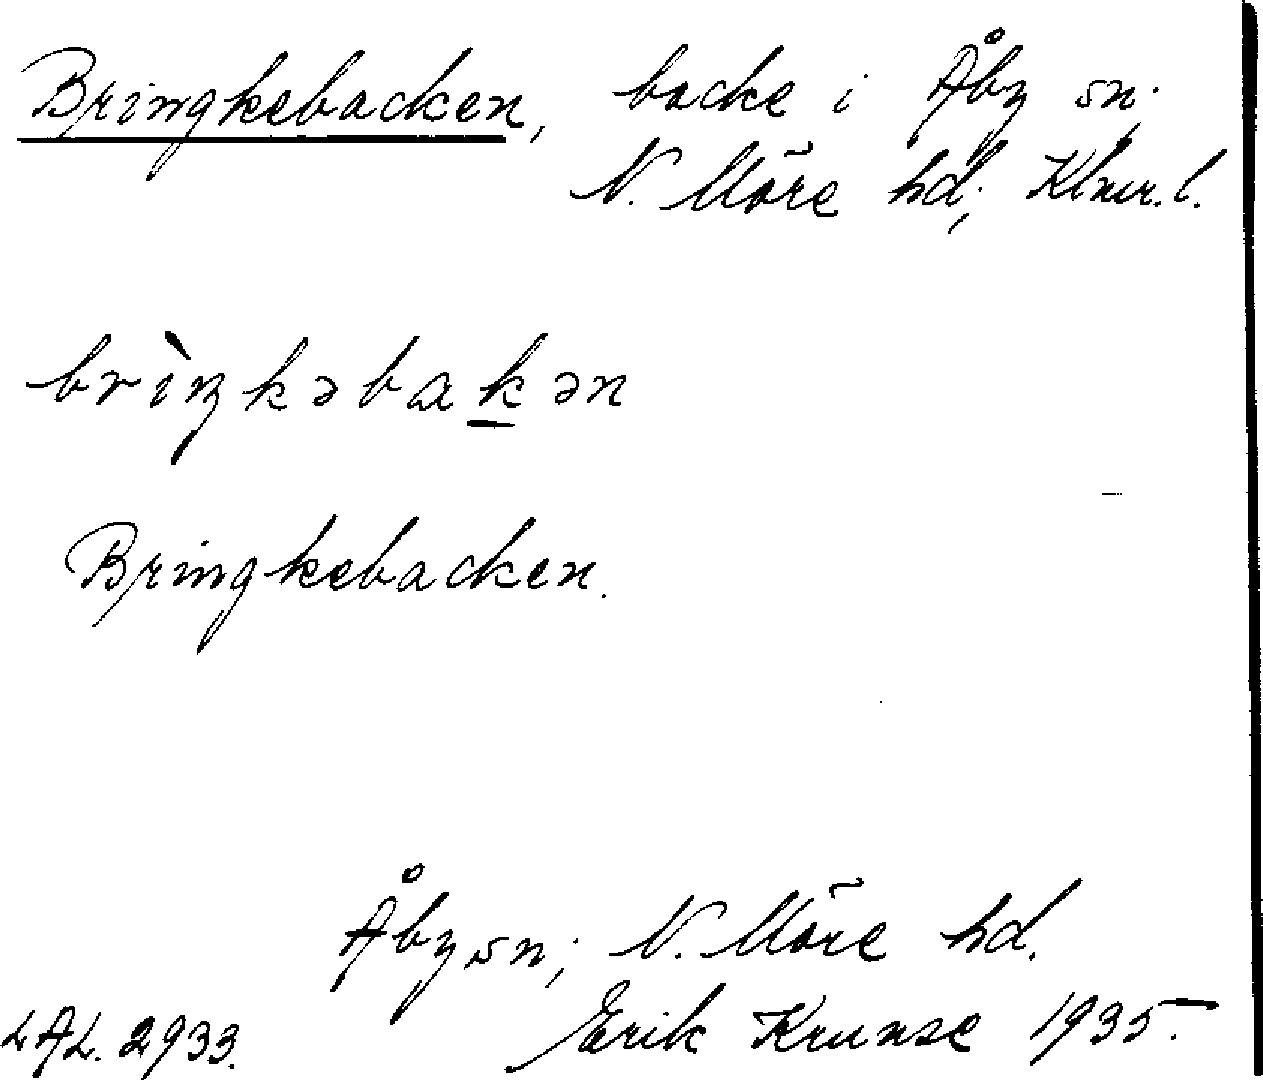 Bringkebacken, backe i Åby sn.
N. Möre hd, Klmr. l.
brìŋkəbakən
Bringkebacken.
Åby sn, N. Möre hd.
LAL. 2933. Erik Krunse 1935.